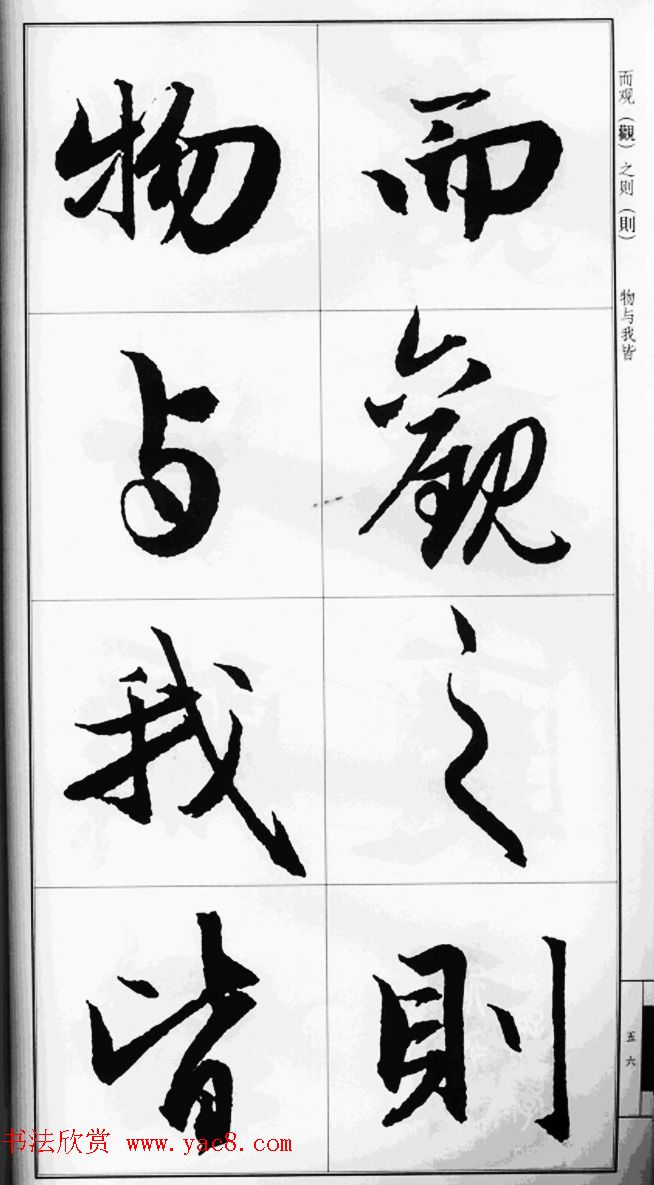 而觀之則
物与我皆
而观（觀）之则（則）　物与我皆
五六
书法欣赏 www.yac8.com